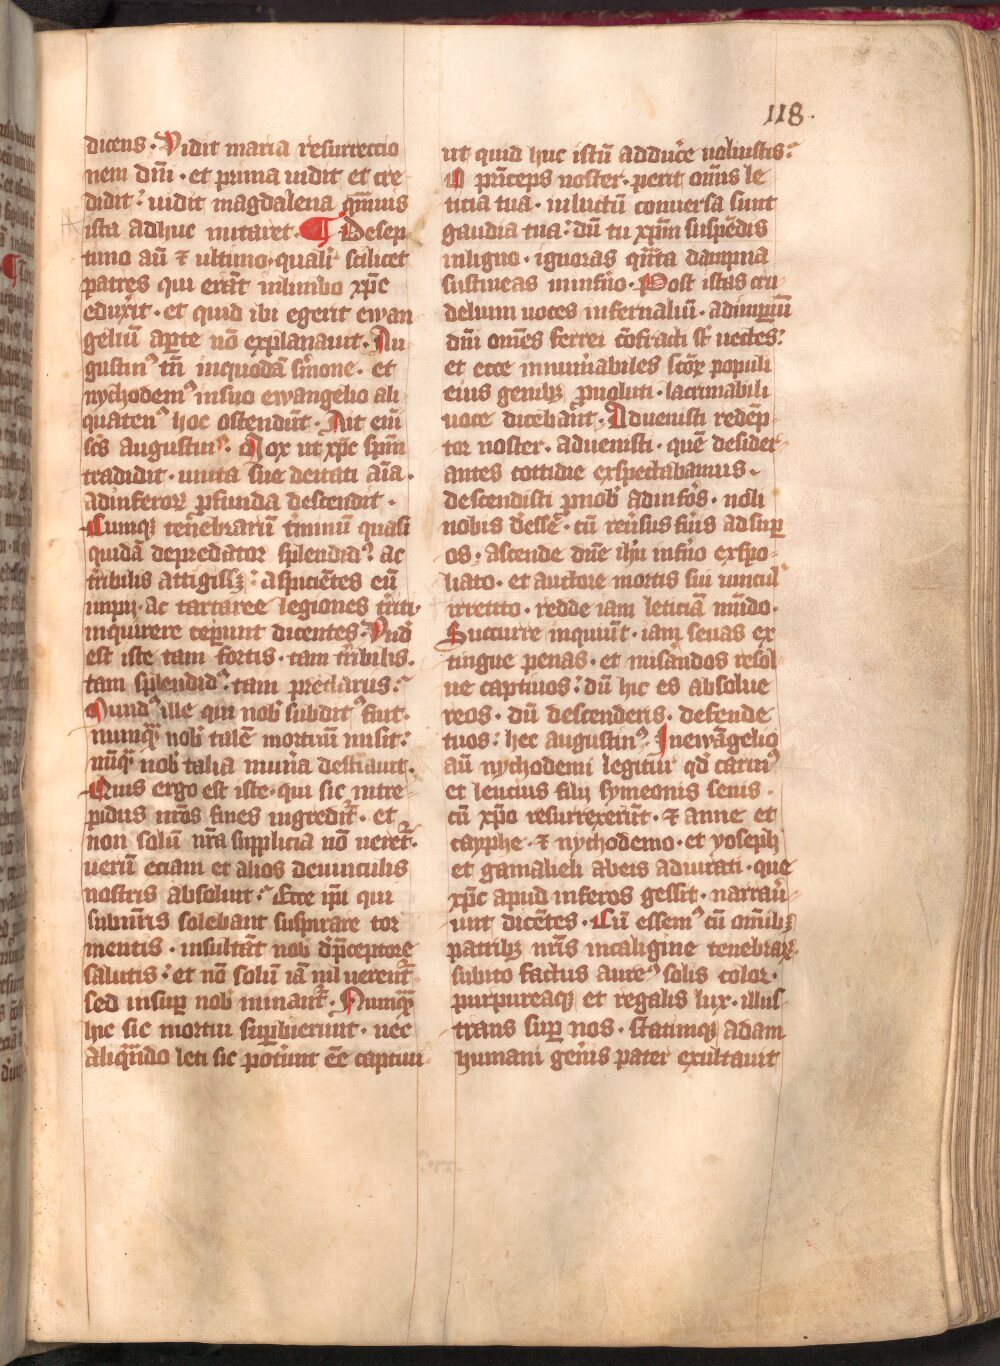 118.
dicens. Vidit maria resurrectio
nem dñi. et prima uidit et cre
didit: uidit magdalena qmuis
ista adhuc nutaret. ¶ De sep
timo aũ ⁊ ultimo. qualiʳ scilicet
patres qui erãt inlimbo xp̃c
eduxit. et quid ibi egerit ewan
geliũ aperte nõ explanauit. Au
gustinꝰ tñ inquodã smone. et
nychodemꝰ insuo ewangelio ali
quatenꝰ hoc ostendũt. Ait eni
scs augustinꝰ. Mox ut xp̃c spm
tradidit. unita sue deitati aĩa.
ad inferorꝝ pfunda descendit.
Cumqꝫ tenebrarũ tminũ quasi
quidã depredator splendidꝰ ac
tribilis attigisſꝫ: aspiciẽtes eũ
impij. ac tartaree legiones trite
inquirere ceperunt dicentes. Vnd
est iste tam fortis. tam tribilis.
tam splendidꝰ. tam preclarus:
Mundꝰ ille qui nob̾ subditꝰ fuit.
numqᷓ nob̾ talẽ mortuũ misit:
nũqᷓ nob̾ talia muñia destiauit.
Quis ergo est iste. qui sic intre
pidus nr̃os fines ingredit̾. et
non solũ nr̃a supplicia nõ ueret̾.
uerũ eciam et alios deuinculis
nostris absoluit: Ecce ip̃i qui
subnr̃is solebant suspirare tor
mentis. insultãt nob̾ d̾p̃ceptore
salutis: et nõ solũ iã nil uerent̾
sed insuꝑ nob̾ minãt̾. Numqᷓ
hic sic mortui supbierunt. nec
aliqñdo leti sic potũnt eẽ captiui
ut quid huc istũ adducẽ uoluistis:
O prĩceps noster. perit oms̃ le
ticia tua. inluctũ conuersa sunt
gaudia tua: dũ tu xpm̃ suspẽdis
inligno. ignoras qñta dampna
sustineas in inf̾no. Post istas cru
delium uoces infernaliũ. adimpiũ
dñi oms̃ ferrei cõfracti st̾ uectes:
et ecce innũabiles sc̃orꝝ populi
eius genibꝫ puoluti. lacrimabili
uoce dicebãnt. Aduenisti redẽp
tor noster. aduenisti. quẽ desider
antes cottidie exspectabamus.
descendisti pnob̾ adinfos̾. noli
nobis deesse. cũ reũsus fũis ad suꝑ
os. ascende dñe ihũ infno exspo
liato. et auctore mortis sui uincul̾
irretito. redde iam leticiã mũdo.
Succurre inquiũt. iam seuas ex
tingue penas. et misãndos resol
ue captiuos: dũ hic es absolue
reos. dũ descenderis. defende
tuos: hec augustinꝰ. In ewãgelio
aũ nychodemi legitur̾ qd̾ carinꝰ
et leucius filij symeonis senis.
cũ xpo resurrexerũt. ⁊ anne et
cayphe. ⁊ nychodemo. et yoseph
et gamalieli abeis adiurati. que
xp̃c apud inferos gessit. narraũ
unt dicẽtes. Cũ essemꝰ cũ omĩbꝫ
patribꝫ nr̃is incaligine tenebrarꝝ
subito factus aureꝰ solis color.
purpureaqꝫ et regalis lux. illus
trans suꝑ nos. statimqꝫ adam
humani gen̾is pater exultauit